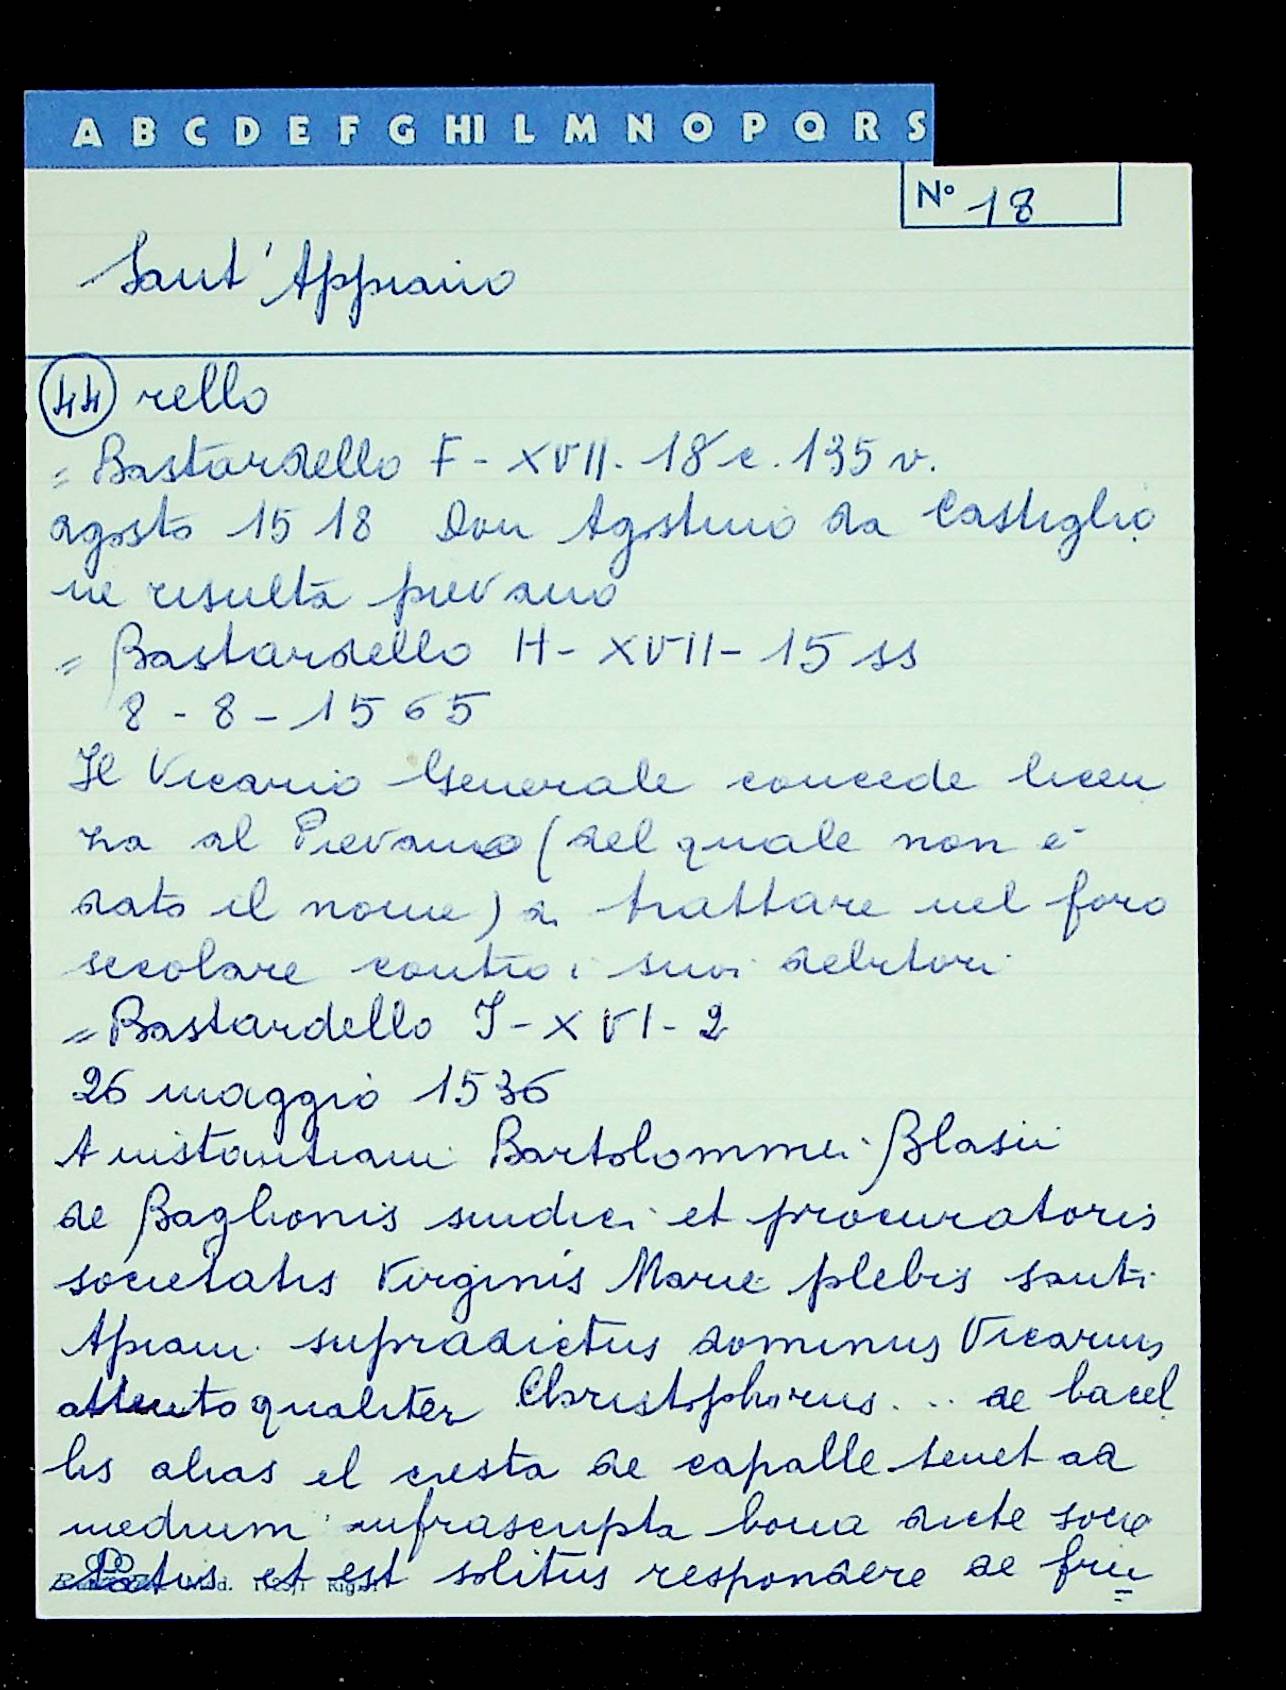 A B C D E F G HI L M N O P Q R S
N° 18
Sant'Appiano
44 rello
= Bastardello F - XVII. 18 c. 135 v.
agosto 1518 Don Agostino da Castiglio
ne risulta pievano
= Bastardello H - XVII - 15 ss
8 - 8 - 1565
Il Vicario Generale concede licen
za al Pievano (del quale non è
dato il nome) di trattare nel foro
secolare contro i suoi debitori
= Bastardello I - XVI - 2
26 maggio 1536
A instantiam Bartolommei Blasii
de Baglionis sindici et procuratoris
societatis Virginis Marie plebis santi
Apiani supradictus dominus Vicarius
attento qualiter Christophorus... de bacel
lis alias el cresta de capalle tenet ad
medium infrascripta bona dicte socie
tatis et est solitus respondere de fru